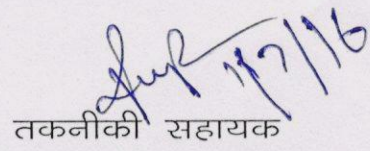 1/7/16
तकनीकी सहायक